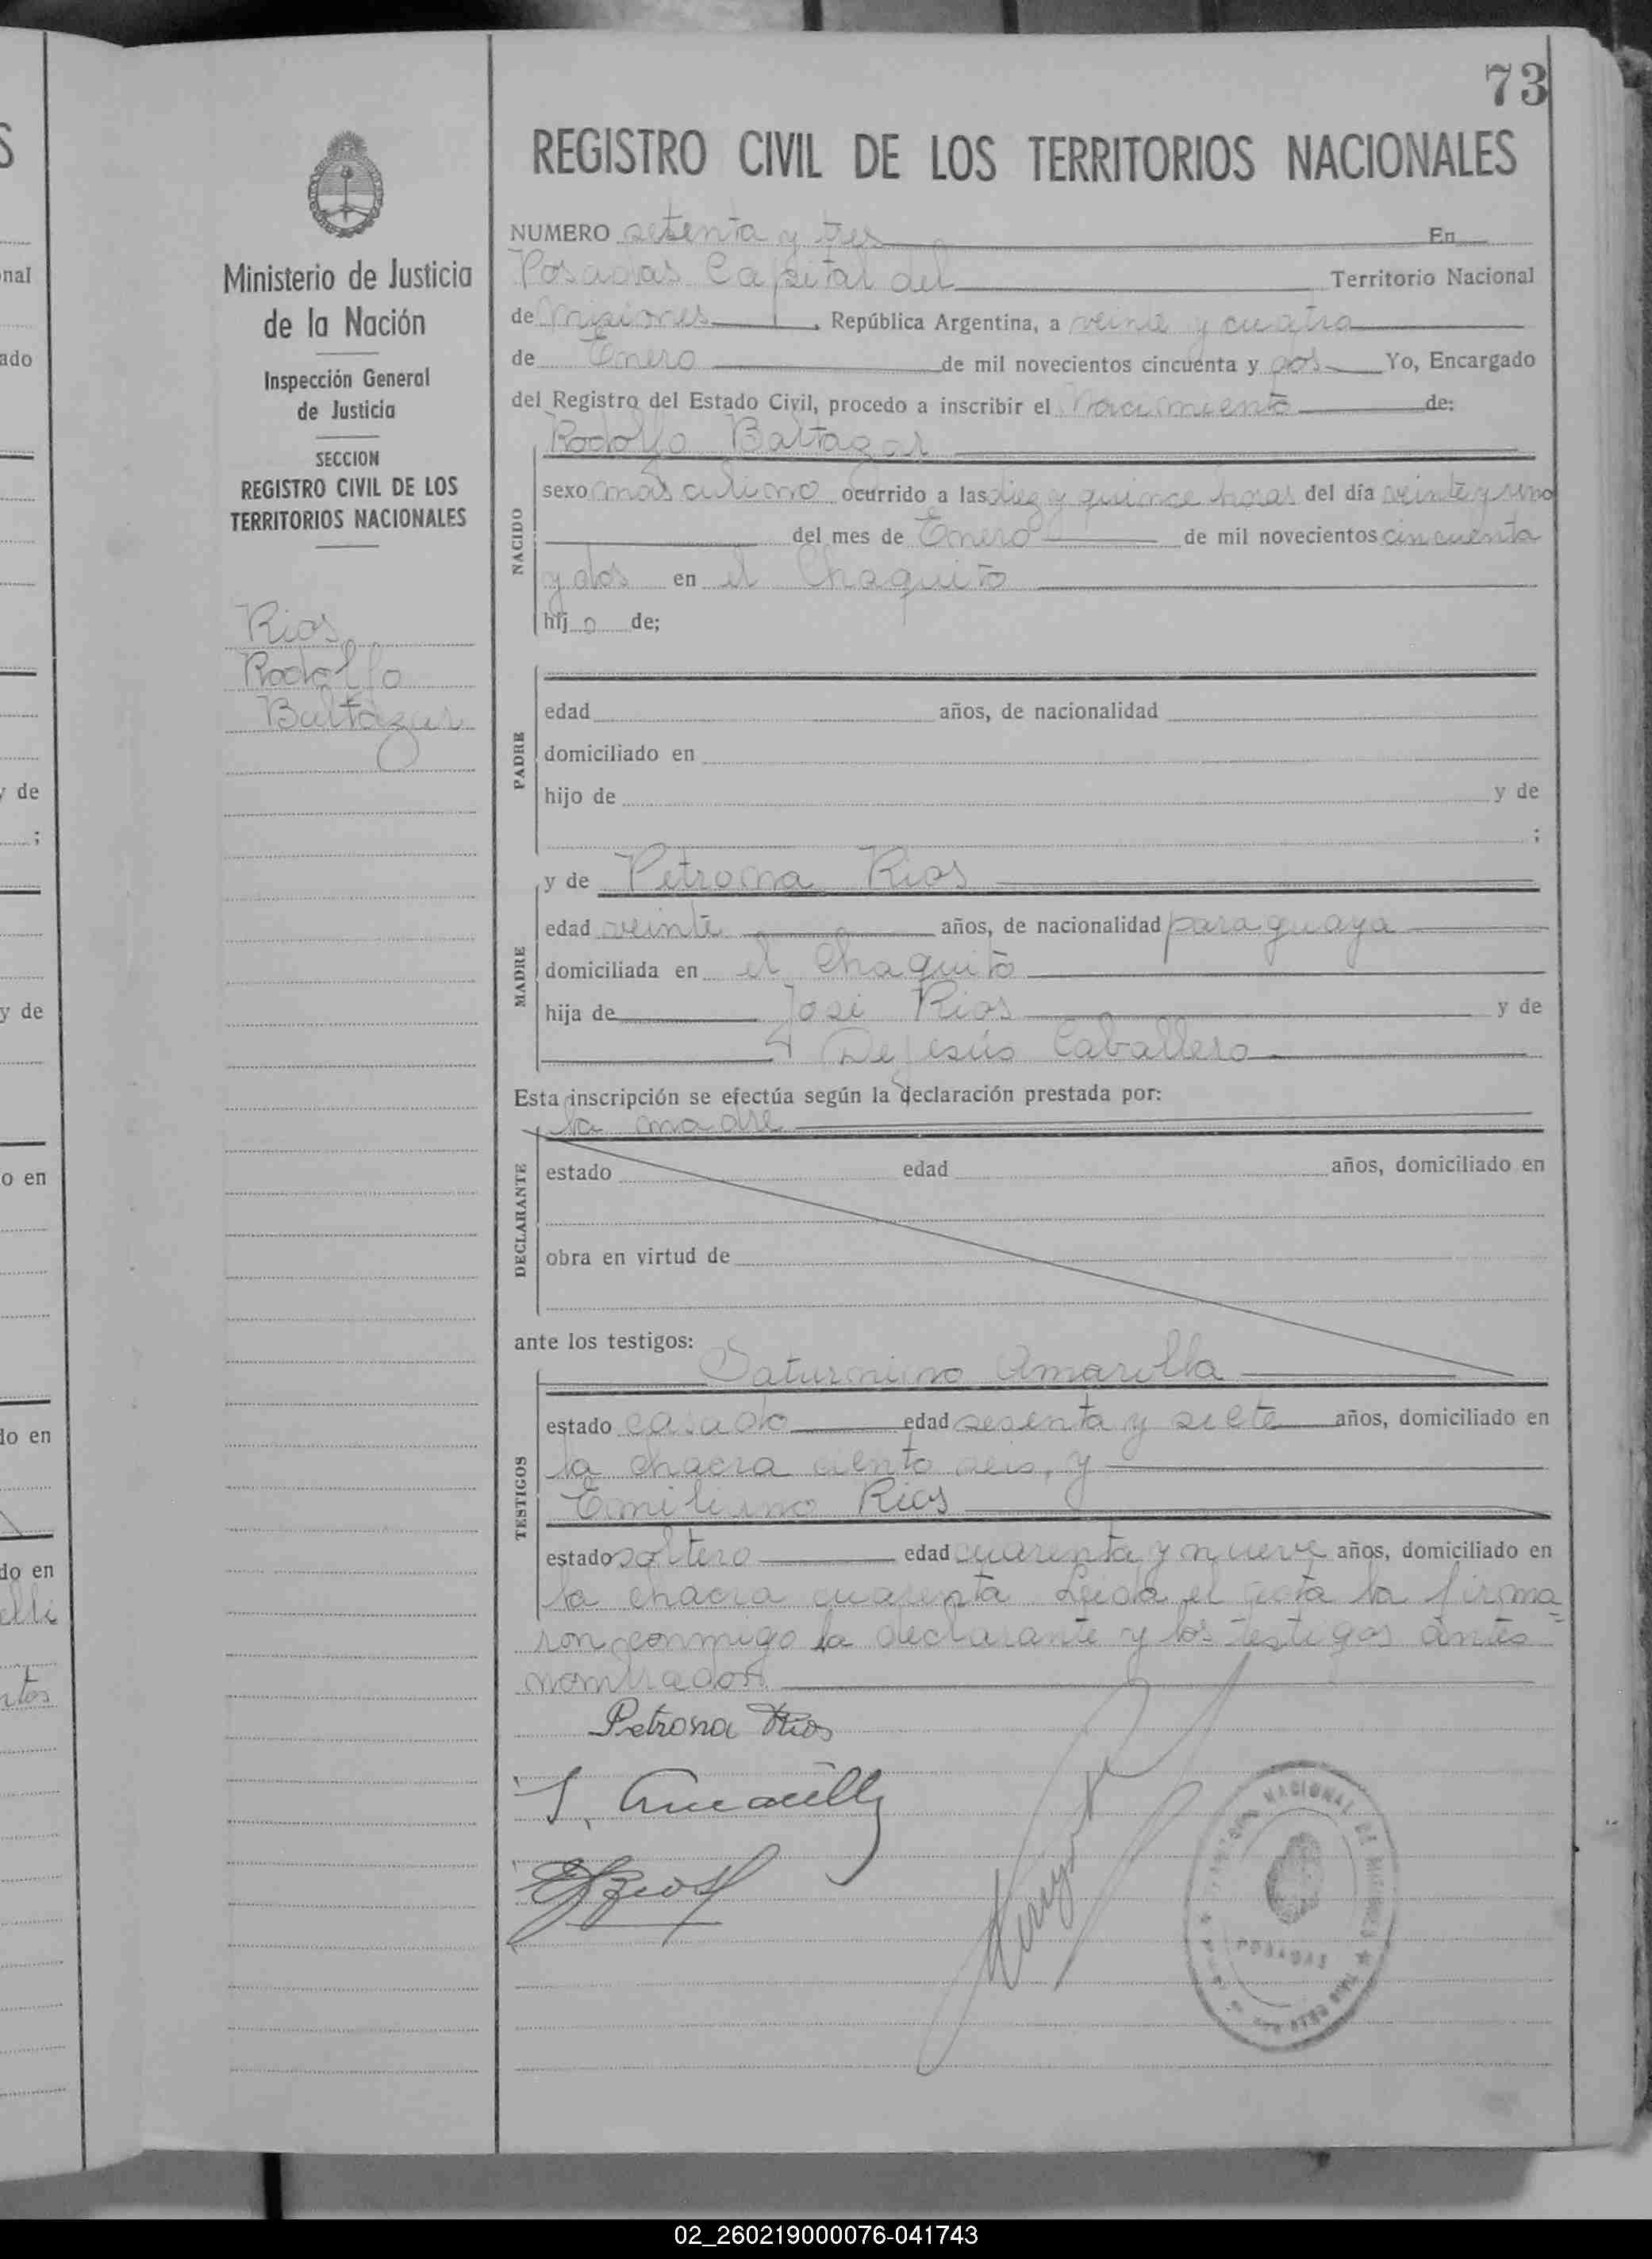 73
REGISTRO CIVIL DE LOS TERRITORIOS NACIONALES
Ministerio de Justicia
de la Nación
Inspección General
de Justicia
SECCION
REGISTRO CIVIL DE LOS
TERRITORIOS NACIONALES
Rios
Rodolfo
Baltazar
NUMERO setenta y tres En
Posadas Capital del Territorio Nacional
de Misiones, República Argentina, a veinte y cuatro
de Enero de mil novecientos cincuenta y dos Yo, Encargado
del Registro del Estado Civil, procedo a inscribir el Nacimiento de:
Rodolfo Baltazar
NACIDO
sexo masculino ocurrido a las diez y quince horas del día veinte y uno
del mes de Enero de mil novecientos cincuenta
y dos en el Chaquito
hijo de;
PADRE
edad años, de nacionalidad
domiciliado en
hijo de y de
;
y de Petrona Rios
MADRE
edad veinte años, de nacionalidad paraguaya
domiciliada en el Chaquito
hija de José Rios y de
De Jesús Caballero
Esta inscripción se efectúa según la declaración prestada por:
la madre
DECLARANTE
estado edad años, domiciliado en
obra en virtud de
ante los testigos:
Saturnino Amarilla
TESTIGOS
estado casado edad sesenta y siete años, domiciliado en
la chacra ciento seis, y
Emiliano Rios
estado soltero edad cuarenta y nueve años, domiciliado en
la chacra cuarenta Leida el acta la firma=
ron conmigo la declarante y los testigos antes
nombrados
Petrona Rios
S. Amarilla
E Rios
NACIONAL DE MISIONES
POSADAS
nal
ado
y de
;
y de
o en
do en
do en
02_260219000076-041743